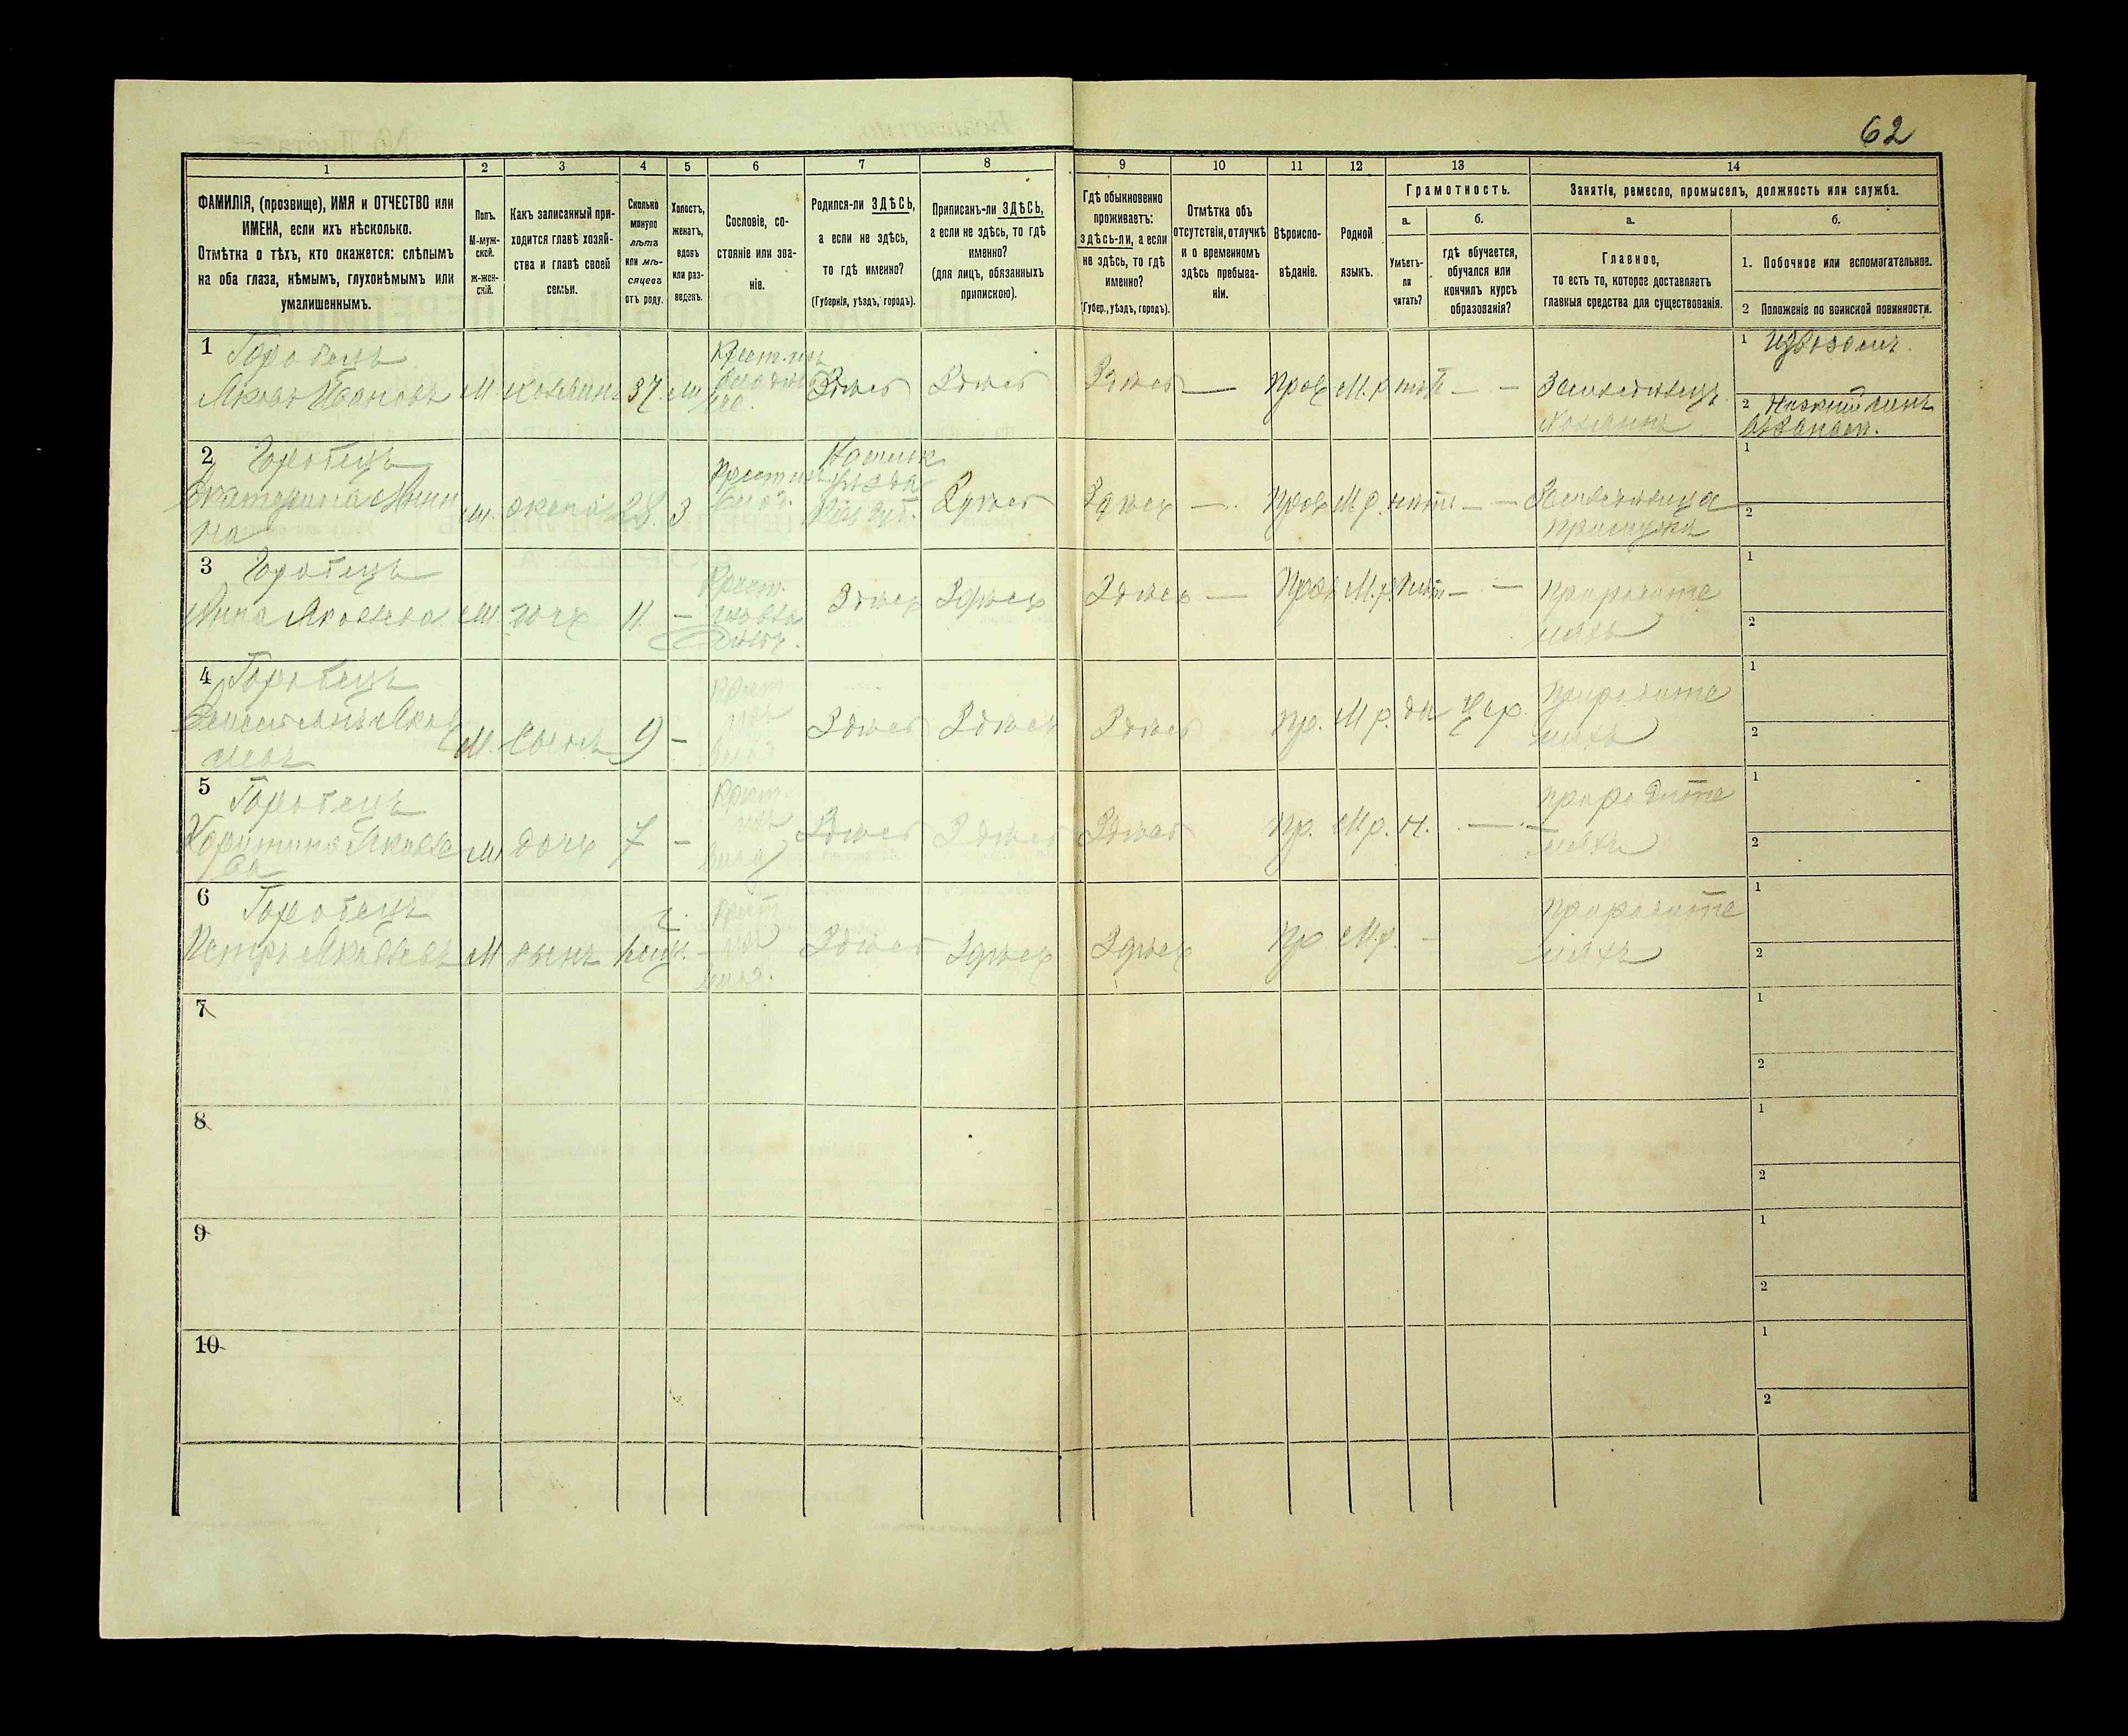 62
1
2
3
4
5
6
7
8
9
10
11
12
13
14
ФАМИЛІЯ, (прозвище), ИМЯ и ОТЧЕСТВО или
ИМЕНА, если ихъ нѣсколько.
Отмѣтка о тѣхъ, кто окажется: слѣпымъ
на оба глаза, нѣмымъ, глухонѣмымъ или
умалишеннымъ.
Полъ.
М-муж-
ской.
ж-жен-
скій.
Какъ записанный при-
ходится главѣ хозяй-
ства и главѣ своей
семьи.
Сколько
минуло
лѣтъ
или мѣ-
сяцевъ
отъ роду.
Холостъ,
женатъ,
вдовъ
или раз-
веденъ.
Сословіе, со-
стояніе или зва-
ніе.
Родился-ли ЗДѢСЬ,
а если не здѣсь,
то гдѣ именно?
(Губернія, уѣздъ, городъ).
Приписанъ-ли ЗДѢСЬ,
а если не здѣсь, то гдѣ
именно?
(для лицъ, обязанныхъ
припискою).
Гдѣ обыкновенно
проживаетъ:
здѣсь-ли, а если
не здѣсь, то гдѣ
именно?
(Губер., уѣздъ, городъ).
Отмѣтка объ
отсутствіи, отлучкѣ
и о временномъ
здѣсь пребыва-
ніи.
Вѣроиспо-
вѣданіе.
Родной
языкъ.
Грамотность.
а.
Умѣетъ-
ли
читать?
б.
гдѣ обучается,
обучался или
кончилъ курсъ
образованія?
Занятіе, ремесло, промыселъ, должность или служба.
а.
Главное,
то есть то, которое доставляетъ
главныя средства для существованія.
б.
1. Побочное или вспомогательное.
2 Положеніе по воинской повинности.
1 Горобецъ
Яковъ Ивановъ
М.
хозяинъ
37
Здѣсь
Здѣсь
Здѣсь —
Прав
М.р.
— —
Хозяинъ
1 Извозомъ.
2 Нижній чинъ
въ запасѣ.
2 Горобецъ
Екатерина
жена
28.
3
Здѣсь
Здѣсь —
Прав
М.р.
— —
1
2
3 Горобецъ
Анна Яковлева
дочь
11
—
Здѣсь
Здѣсь
Здѣсь —
Прав
М.р.
— —
При родите
ляхъ
1
2
4 Горобецъ
М.
сынъ
9
—
Здѣсь
Здѣсь
Здѣсь
Пр.
М.р.
да
Цер.
При родите
ляхъ
1
2
5 Горобецъ
Харитина Яковле
ва
дочь
7
—
Здѣсь
Здѣсь
Здѣсь
Пр.
М.р.
н.
—
При родите
ляхъ
1
2
6 Горобецъ
Петръ Яковлевъ
М
сынъ
—
Здѣсь
Здѣсь
Здѣсь
Пр.
М.р.
—
При родите
ляхъ
1
2
7
1
2
8
1
2
9
1
2
10
1
2